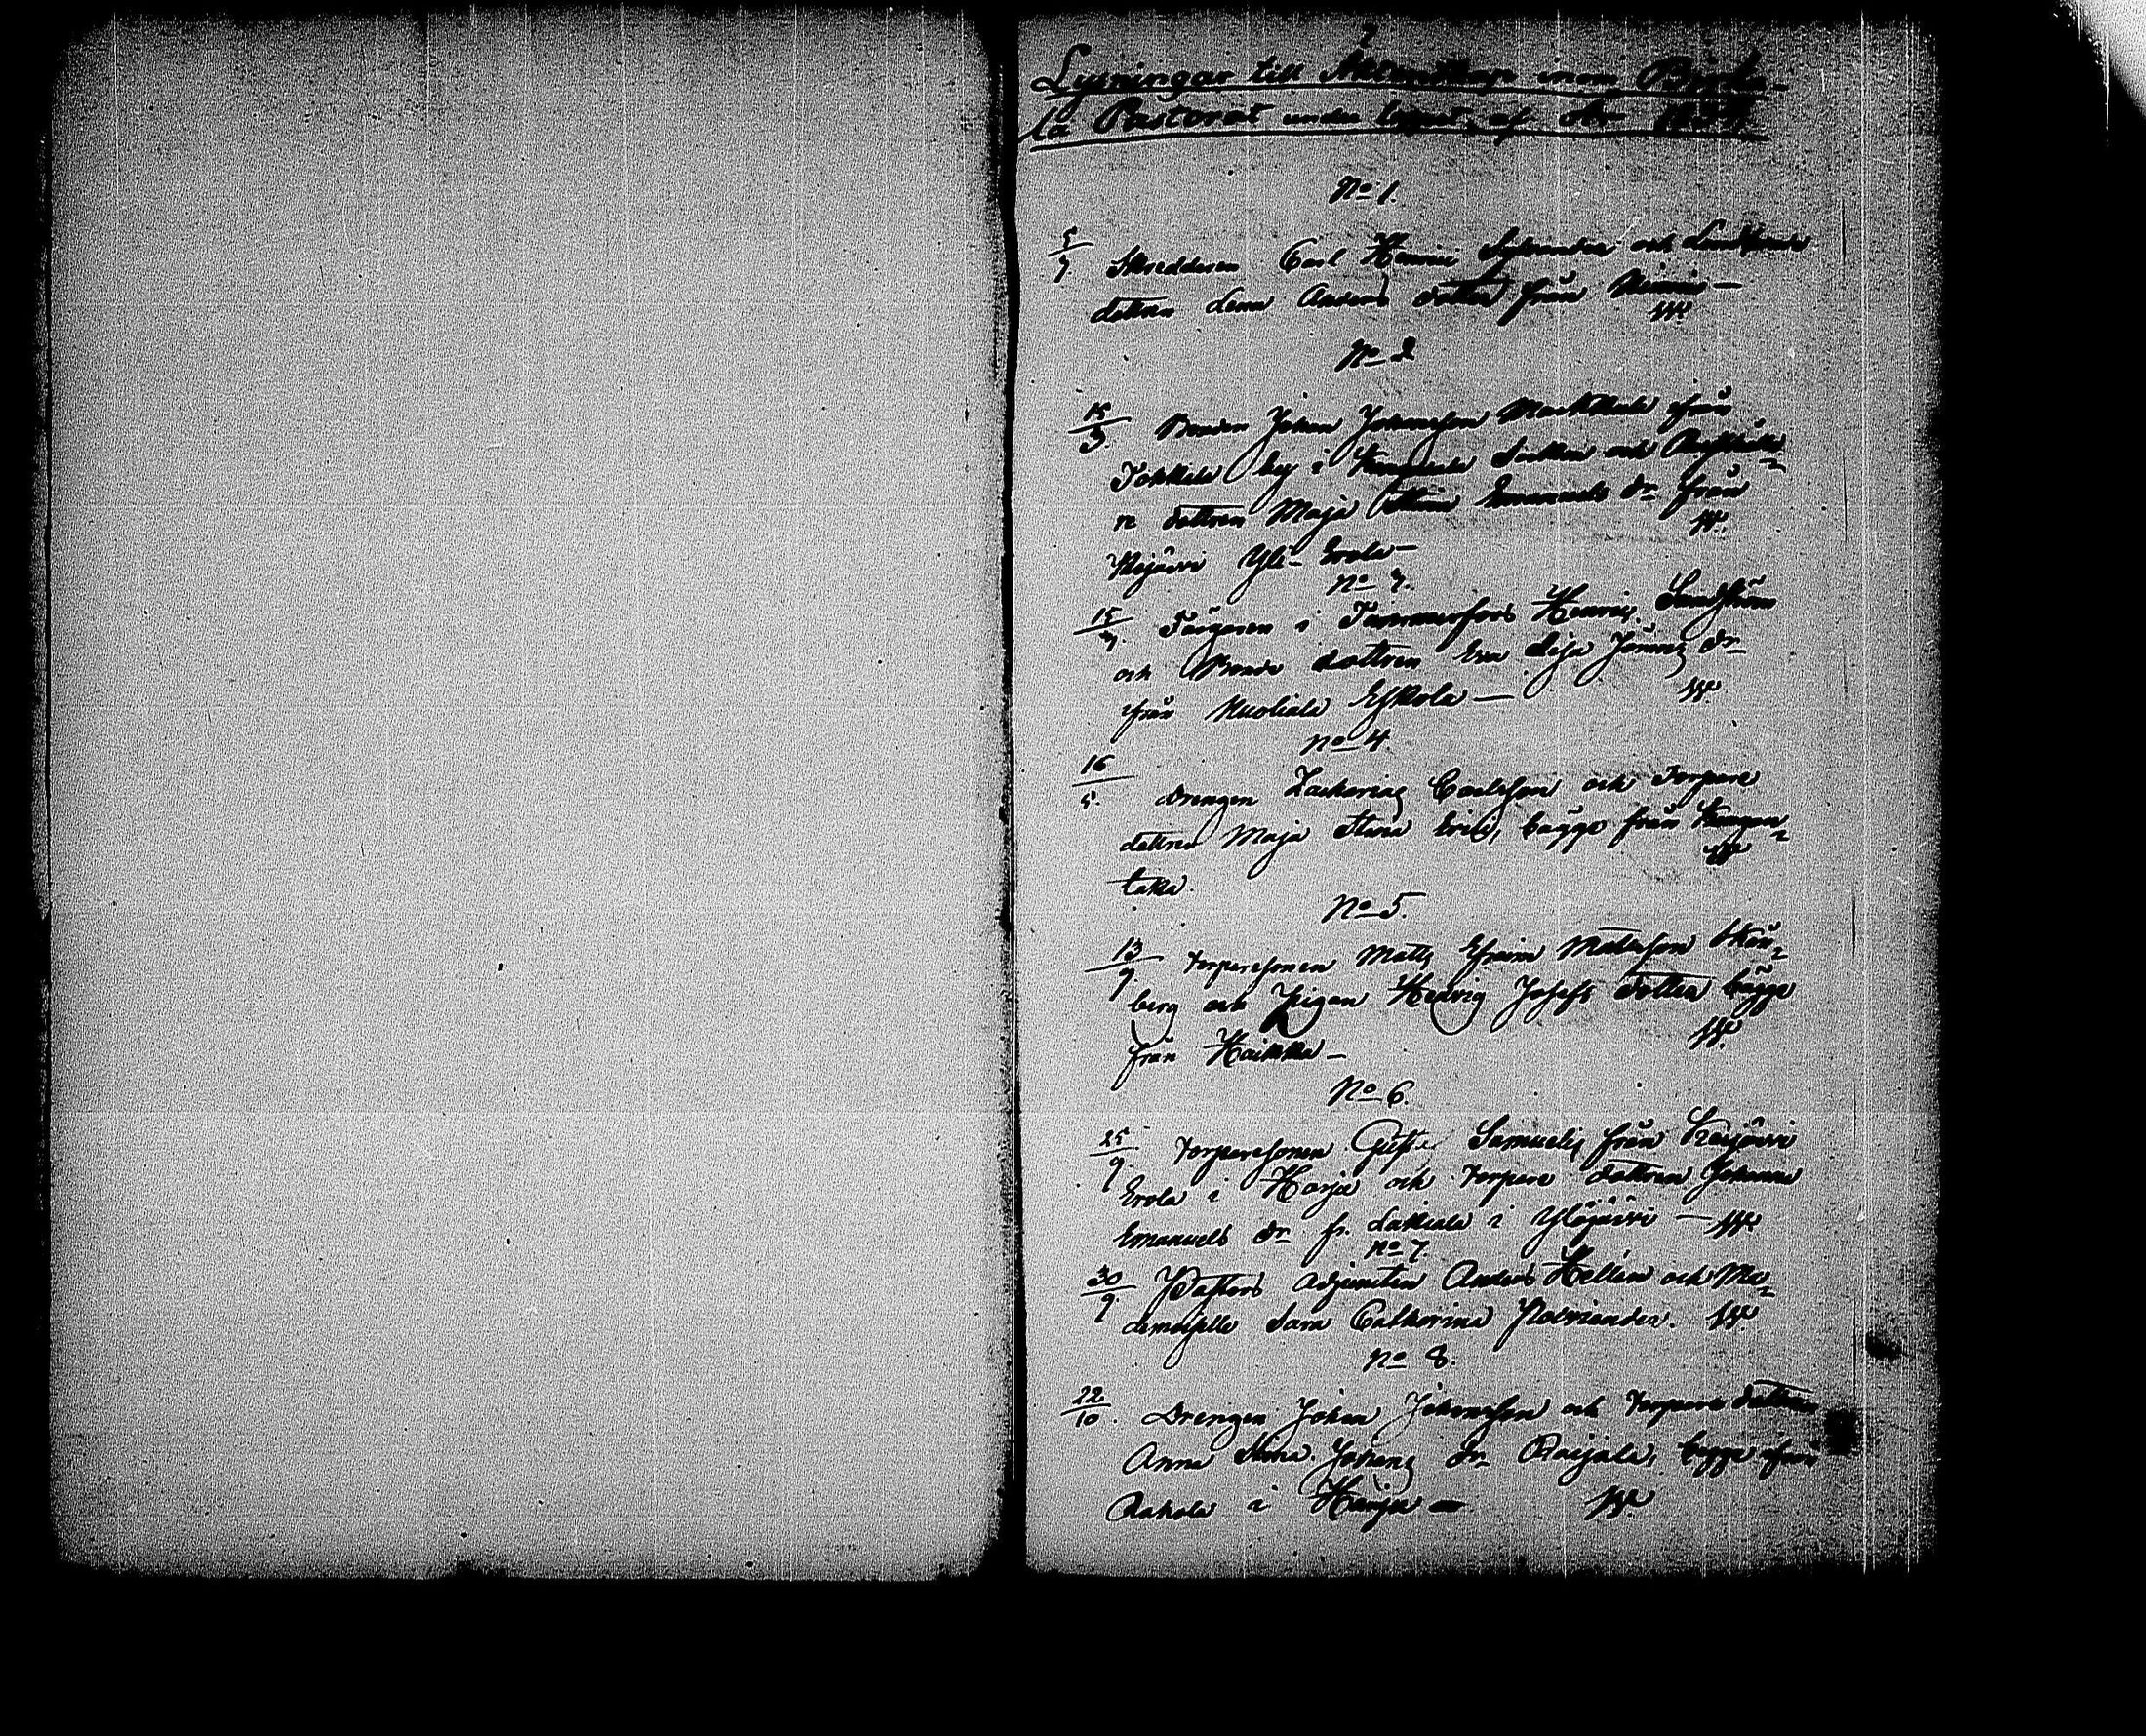 Lysningar till Äktenskap inom Birka-
la Pastorat under loppet af
No 1.
5/7 Skreddaren Carl Henric och
dottren Lena Anders dotter från Niemi —
No 2
15/3. Bonden Johan Johansson från
Tokkila by i och
re dottren Maja Stina Emanuels dr från
Keijärvi Yli-Erola —
No 3.
15/7. Färgaren i Tammerfors Henric Sundström
och Bonde dottren Eva Lisa Johans dr
från Nuoliala Eskola —
No 4.
16/5. Drengen Zacharias Carlsson och Torpare
dottren Maja Stina Erics, bägge från Kangan-
taka.
No 5.
13/9 Torparesonen Matts Efraim Matsson
berg och Pigan Hedvig Josefs dotter bägge
från Haikka —
No 6.
25/9. Torparesonen Gust. Samuels från Keijärvi
Erola i Harju och Torpare dottren Johanna
Emanuels dr fr. Lakiala i Ylöjärvi —
No 7.
30/9. Pastors Adjuncten Anders Hellén och Ma-
demoiselle Sara Catharina
No 8.
22/10. Drengen Johan Johansson och Torpare dottren
Anna Stina Johans dr bägge från
i Harju —